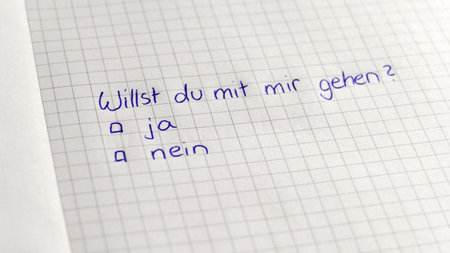 Willst du mit mir gehen?
□ ja
□ nein